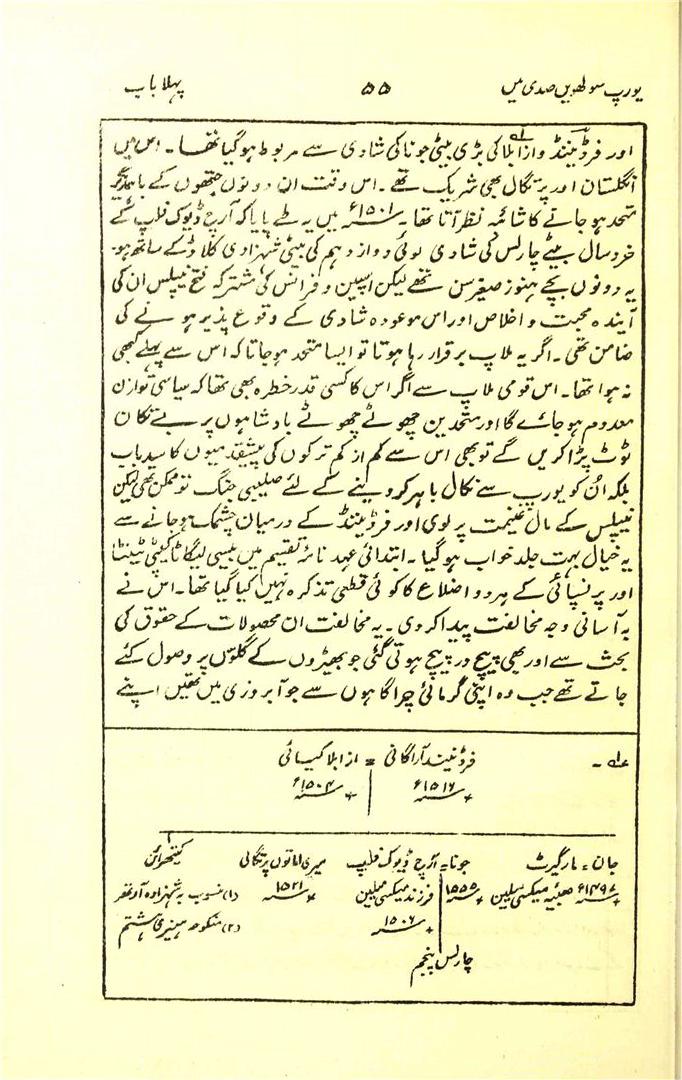 یورپ سولھویں صدی میں ۵۵ پہلا باب
اور فرڈیننڈ وازابلا کی بڑی بیٹی جونا کی شادی سے مربوط ہوگیا تھا ۔ اس میں
انگلستان اور پرتگال بھی شریک تھے ۔ اس وقت ان دونوں جتھوں کے باہمدیگر
متحد ہو جانے کا شائبہ نظر آتا تھا ۔ ۱۵۰۱ء میں یہ طے پایا کہ آرچ ڈیوک فلپ کے
خرد سال بیٹے چارلس کی شادی لوئی دوازدہم کی بیٹی شہزادی کلاڈ کے ساتھ ہو۔
یہ دونوں بچے ہنوز صغیر سن تھے لیکن اسپین و فرانس کی مشترکہ فتح نیپلس ان کی
آیندہ محبت و اخلاص اور اس موعودہ شادی کے وقوع پذیر ہونے کی
ضامن تھی ۔ اگر یہ ملاپ برقرار رہا ہوتا تو ایسا متحد ہوجاتا کہ اس سے پہلے کبھی
نہ ہوا تھا ۔ اس قومی ملاپ سے اگر اس کا کسی قدر خطرہ بھی تھا کہ سیاسی توازن
معدوم ہو جائے گا اور متحدین چھوٹے چھوٹے بادشاہوں پر بے تکان
ٹوٹ پڑا کریں گے تو بھی اس سے کم از کم ترکوں کی پیشقدمیوں کا سد باب
بلکہ اُن کو یورپ سے نکال باہر کر دینے کے لئے صلیبی جنگ تو ممکن تھی لیکن
نیپلس کے مال غنیمت پر لوی اور فرڈیننڈ کے درمیان چشمک ہو جانے سے
یہ خیال بہت جلد خواب ہو گیا ۔ ابتدائی عہد نامۂ تقسیم میں بیسی لیگاٹا کیپٹی ٹینٹا
اور پرنسپائی کے ہر دو اضلاع کا کوئی قطعی تذکرہ نہیں کیا گیا تھا ۔ اس نے
بہ آسانی وجہ مخالفت پیدا کر دی ۔ یہ مخالفت ان محصولات کے حقوق کی
بحث سے اور بھی پیچ در پیچ ہوتی گئی جو بھیڑوں کے گلّوں پر وصول کئے
جاتے تھے جب وہ اپنی گرمائی چراگاہوں سے جو آبروزی میں تھیں اپنے
عله ۔ فرڈنیند آراگانی = ازابلا کیسائی
+ ۱۵۱۶ء + ۱۵۰۴ء
جان = مارگیرٹ جونا = آرچ ڈیوک فلپ میری اماتوں پرتگالی کیتھرائن
+ ۱۴۹۷ء صبّیہ میکسی ملین + ۱۵۵۵ء فرزند میکسی ملین + ۱۵۲۱ء (۱) منسوب بہ شہزادہ آرتھر
+ ۱۵۰۶ء (۲) منکوحہ ہینری ہشتم
چارلس پنجم